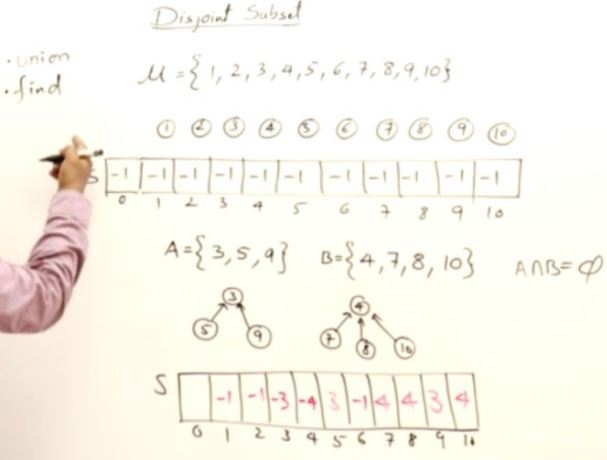 Disjoint Subset
• union
• find
μ = { 1, 2, 3, 4, 5, 6, 7, 8, 9, 10}
1 2 3 4 5 6 7 8 9 10
S -1 -1 -1 -1 -1 -1 -1 -1 -1 -1 -1
0 1 2 3 4 5 6 7 8 9 10
A={3, 5, 9} B={4, 7, 8, 10} A∩B= ϕ
3 4
5 9 7 8 10
S -1 -1 -3 -4 3 -1 4 4 3 4
0 1 2 3 4 5 6 7 8 9 10